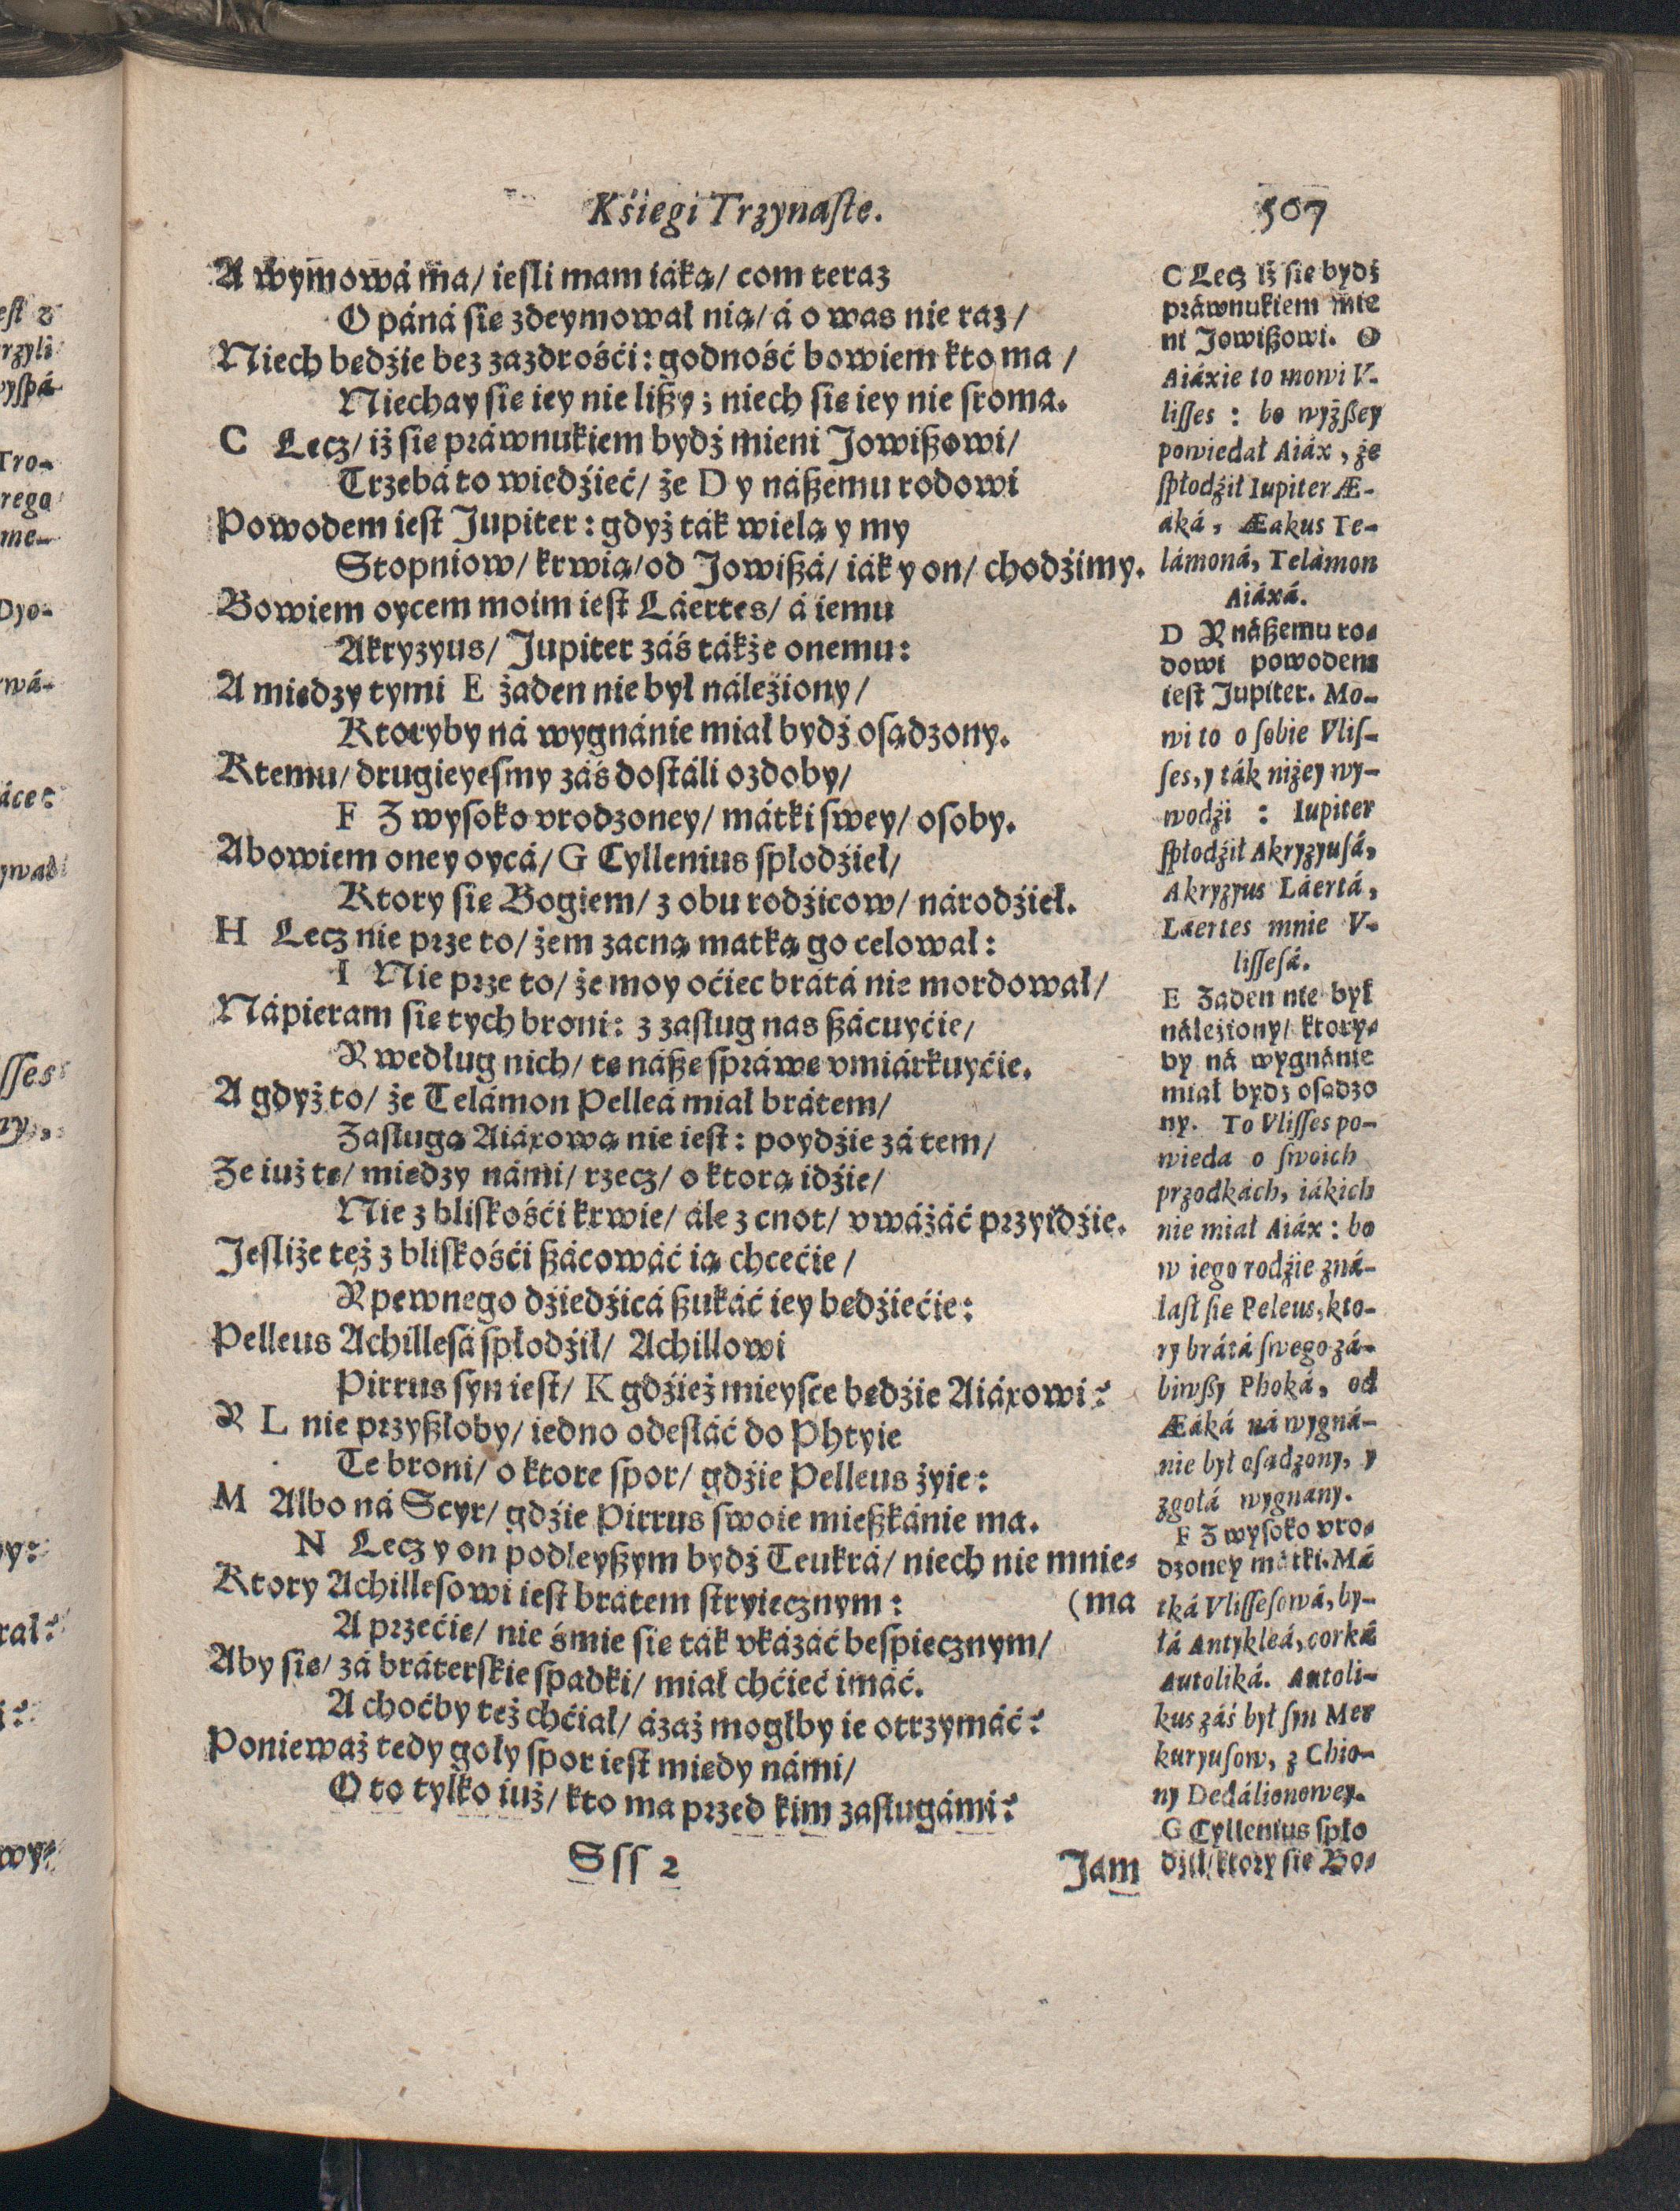 Kśięgi Trzynaste.
507
A wymowá ma/ iesli mam iáką/ com teraz
O páná się zdeymował nią/ á o was nie raz/
Niech będźie bez zazdrośći: godność bowiem kto ma/
Niechay się iey nie liszy; niech się iey nie sroma.
C Lecz/ iż się práwnukiem bydź mieni Jowiszowi/
Trzebá to wiedźieć/ że D y nászemu rodowi
Powodem iest Jupiter: gdyż ták wielą y my
Stopniow/ krwią/ od Jowiszá/ iák y on/ chodźimy.
Bowiem oycem moim iest Láertes/ á iemu
Akryzyus/ Jupiter záś tákże onemu:
A miedzy tymi E żaden nie był náleźiony/
Ktoryby ná wygnánie miał bydź osądzony.
Ktemu/ drugieyesmy záś dostáli ozdoby/
F Z wysoko vrodzoney/ mátki swey/ osoby.
Abowiem oney oycá/ G Cyllenius spłodźieł/
Ktory się Bogiem/ z obu rodźicow/ národźieł.
H Lecz nie prze to/ żem zacną matką go celował:
I Nie prze to/ że moy oćiec brátá nie mordował/
Nápieram się tych broni: z zasług nas szácuyćie/
Y według nich/ tę násze spráwę vmiárkuyćie.
A gdyż to/ że Telámon Pelleá miał brátem/
Zasługą Aiáxową nie iest: poydźie zá tem/
Ze iuż tę/ miedzy námi/ rzecz/ o ktorą idźie/
Nie z bliskośći krwie/ ále z cnot/ vważáć przyidźie.
Jesliże też z bliskośći szácowáć ią chcećie/
Y pewnego dźiedźicá szukáć iey będźiećie:
Pelleus Achillesá spłodźił/ Achillowi
Pirrus syn iest/ K gdźież mieysce będźie Aiáxowi?
Y L nie przyszłoby/ iedno odesłáć do Phtyie
Te broni/ o ktore spor/ gdźie Pelleus żyie:
M Albo ná Scyr/ gdźie Pirrus swoie mieszkánie ma.
N Lecz y on podleyszym bydź Teukrá/ niech nie mnie-
(ma
Ktory Achillesowi iest brátem stryiecznym:
A przećie/ nie śmie się ták vkázáć bespiecznym/
Aby się/ zá bráterskie spadki/ miał chćieć imáć.
A choćby też chćiał/ ázaż mogłby ie otrzymáć?
Ponieważ tedy goły spor iest miedy námi/
O to tylko iuż/ kto ma przed kim zasługámi?
Sss 2
Jam
C Lecz iż się bydź
práwnukiem mie
ni Jowiszowi. O
Aiáxie to mowi V-
lisses : bo wyższey
powiedał Aiáx, że
spłodźił Iupiter Æ-
aká, Æakus Te-
lámoná, Telámon
Aiáxá.
D Y nászemu ro-
dowi powodem
iest Jupiter. Mo-
wi to o sobie Vlis-
ses, y ták niżey wy-
wodźi : Iupiter
spłodźił Akryzyusá,
Akryzyus Láertá,
Láertes mnie V-
lissesá.
E Zaden nie był
náleźiony/ ktory-
by ná wygnánie
miał bydź osądzo
ny. To Vlisses po-
wieda o swoich
przodkách, iákich
nie miał Aiáx : bo
w iego rodźie zná-
last się Peleus, kto-
ry brátá swego zá-
biwszy Phoká, od
Æáká ná wygná-
nie był osądzony, y
zgołá wygnany.
F Z wysoko vro-
dzoney mátki. Má
tká Vlissesowá, by-
łá Antykleá, corká
Autoliká. Autoli-
kus záś był syn Mer
kuryusow, z Chio-
ny Dedálionowey.
G Cyllenius spło
dźił/ ktory się Bo-